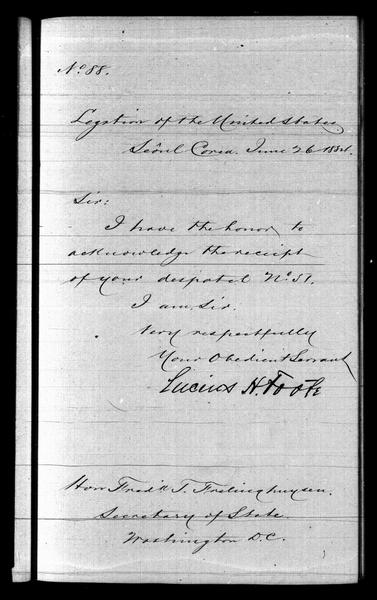 No 88.
Legation of the United States
Seoul Corea. June 26 1884.
Sir:
I have the honor to
acknowledge the receipt
of your despatch No 51.
I am, Sir,
Very respectfully
Your Obedient Servant
Lucius H. Foote
Hon Fredk T. Frelinghuysen.
Secretary of State
Washington D.C.